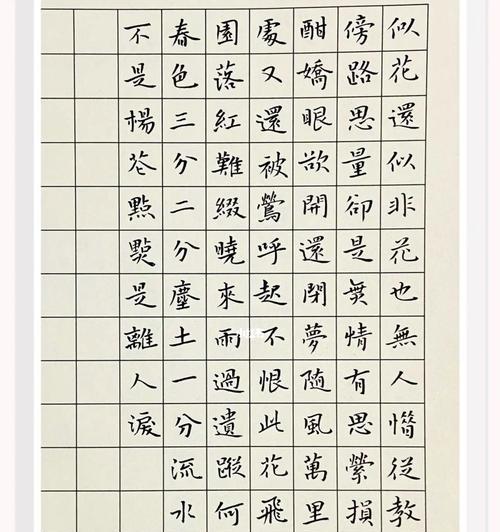 似花還似非花也無人惜從教
傍路思量卻是無情有思縈損
酣嬌眼欲開還閉夢隨風萬里
處又還被鶯呼起不恨此花飛
園落紅難綴曉來雨過遺蹤何
春色三分二分塵土一分流水
不是楊花點點是離人淚